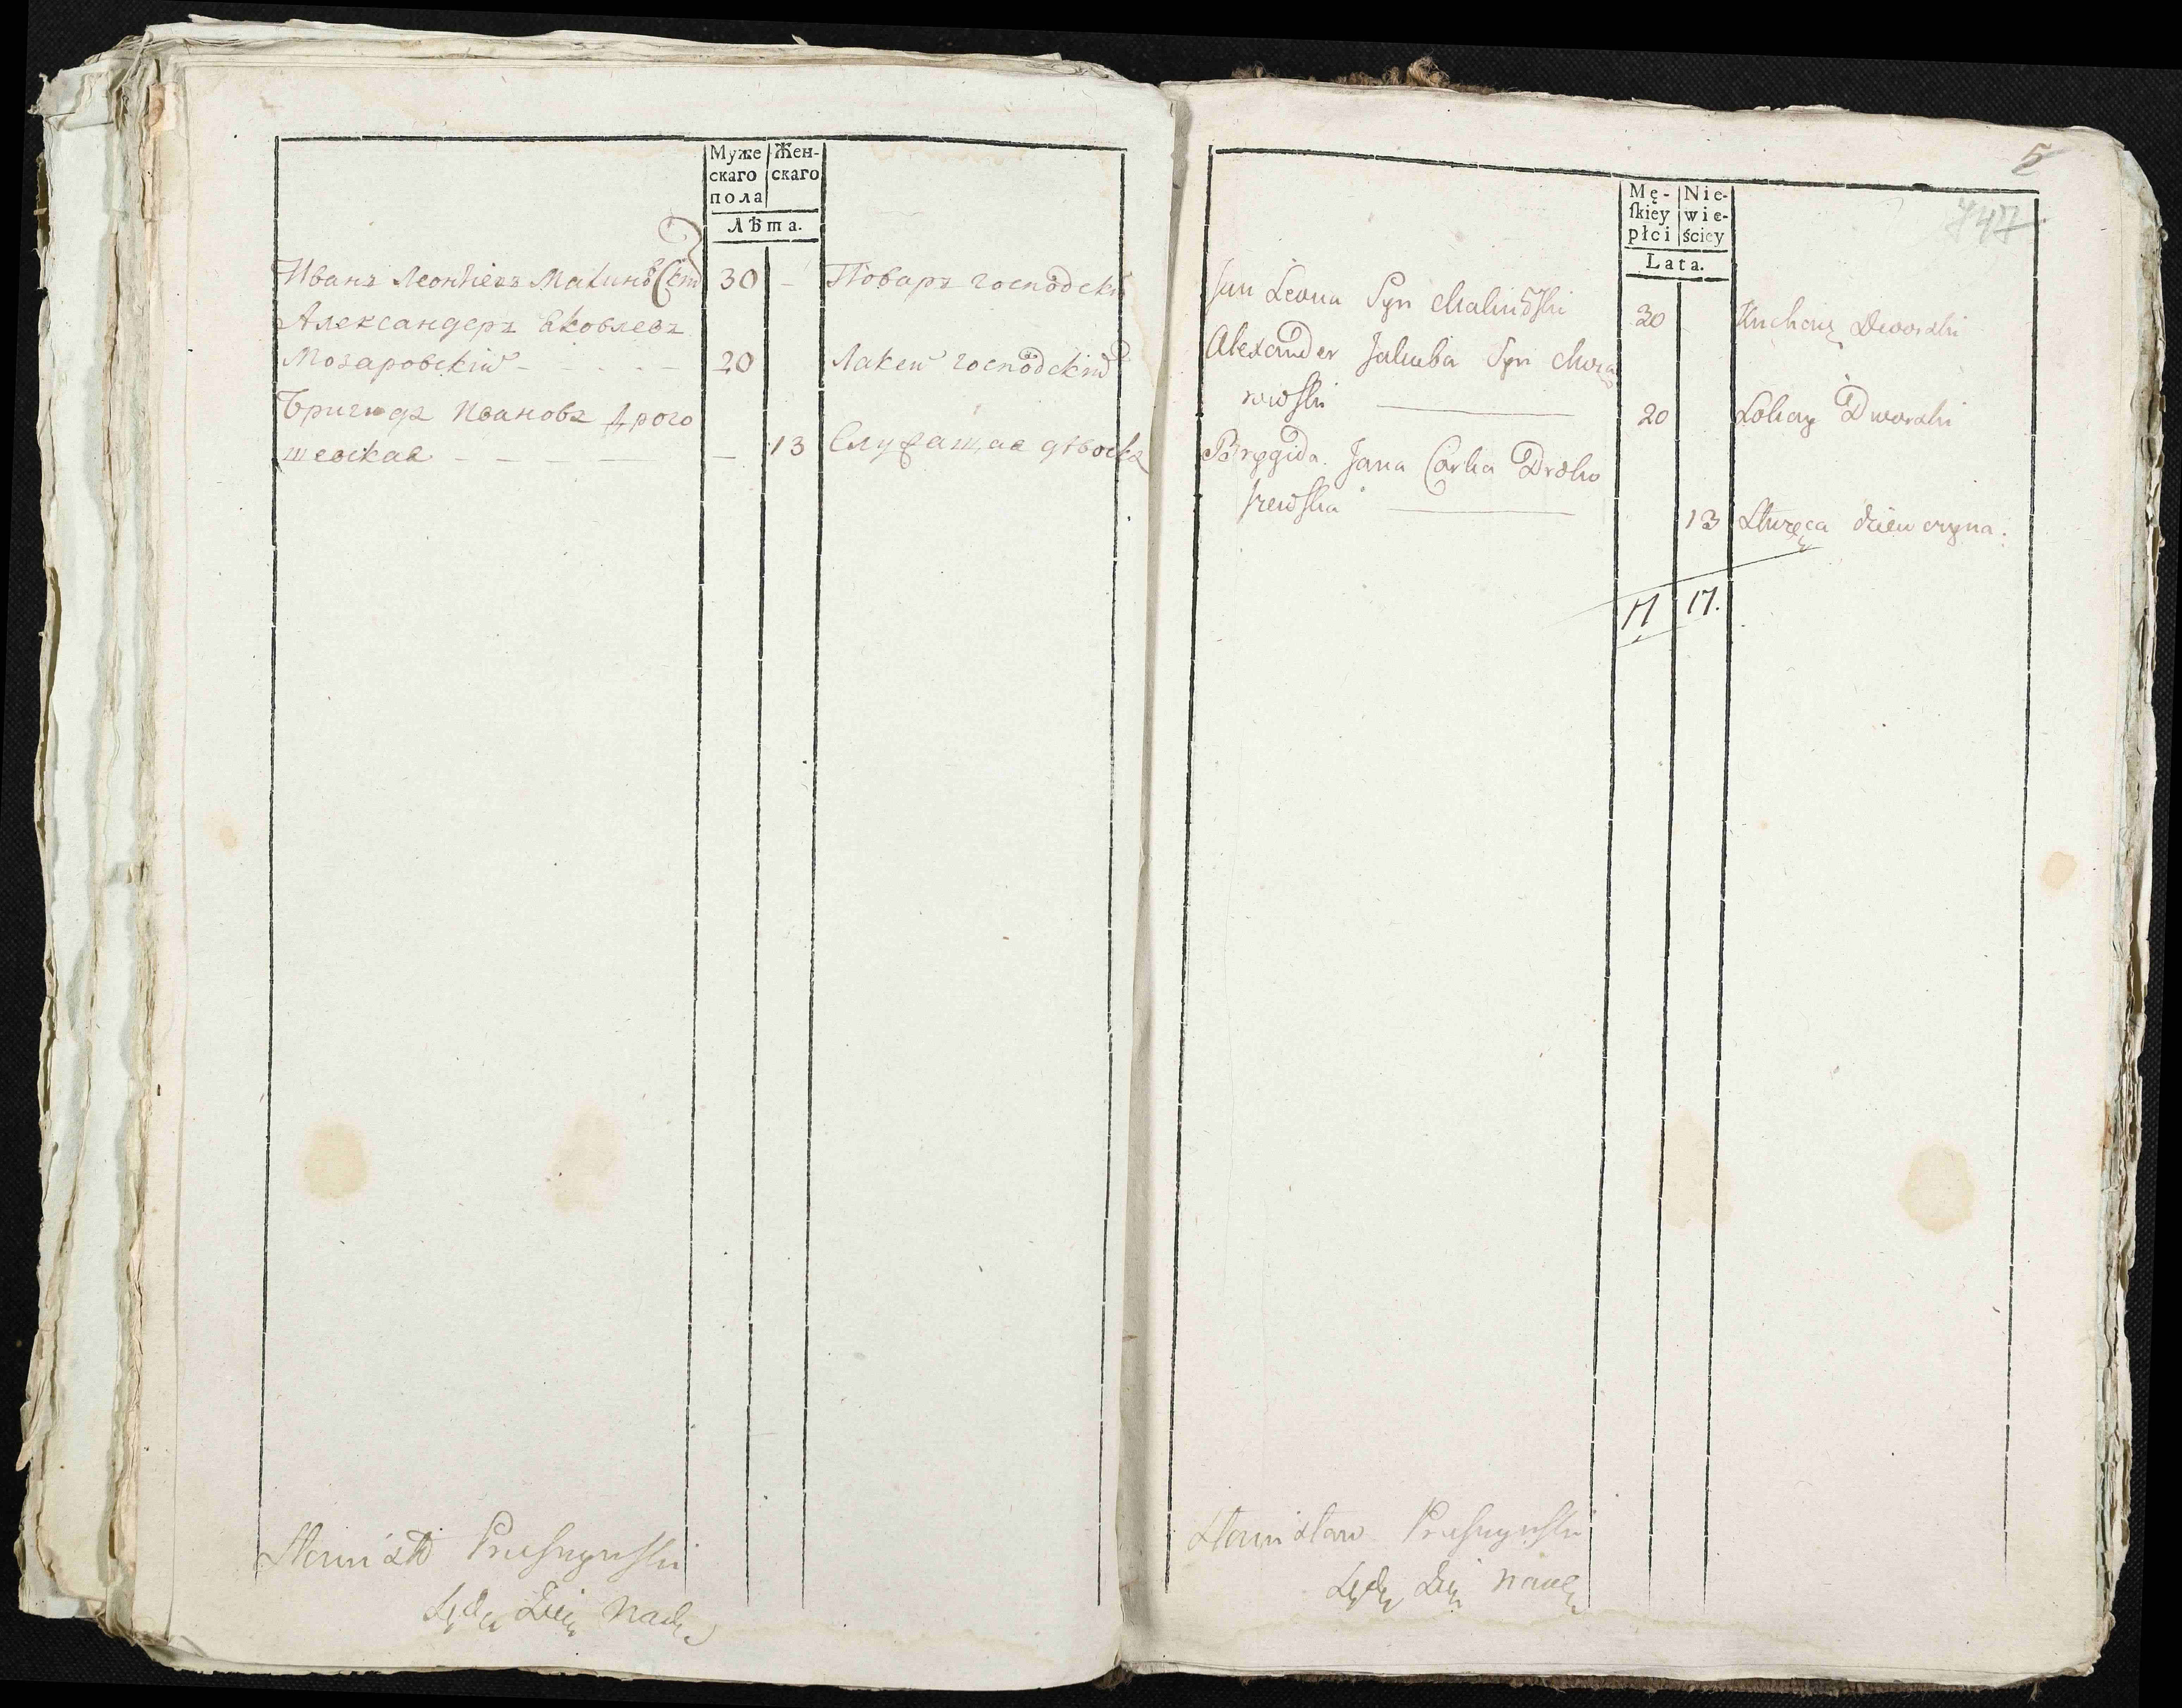 Муже Жен-
скаго скаго
пола
Лѣта.
Иванъ Леонтіевъ Малиновскій 30 - Поваръ господскій
Александеръ Яковлевъ
Мозаровскій - - - - - 20 Лакей господскій
Бригида Ивановъ Дрого
шевская - - - - 13 Служащая дѣвска
Stanisła
Sędzia Nad
5
747
Mę- Nie-
ſkiey wie-
płci ściey
Lata.
Jan Leona Syn Malinowſki 30 Kucharz Dworski
Alexander Jakuba Syn Moza
rowſki 20 Lokay Dworski
Brygida Jana Corka Droho
ſzewſka 13 Służąca dziewczyna.
17 17.
Stanisław